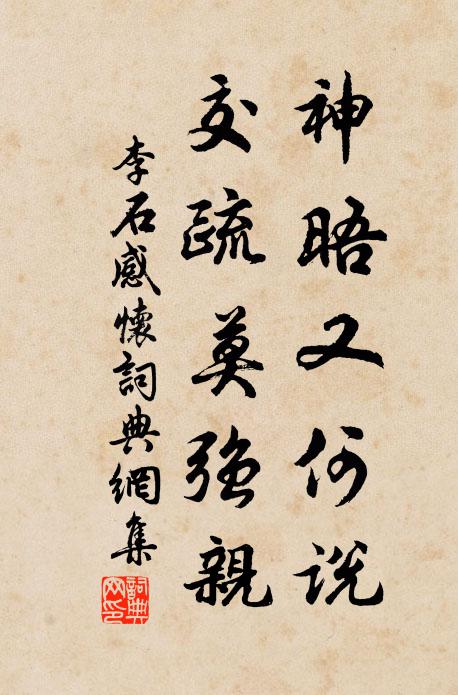 神晤又何說
交疏莫強親
李石感懷詞典網集
詞典網印